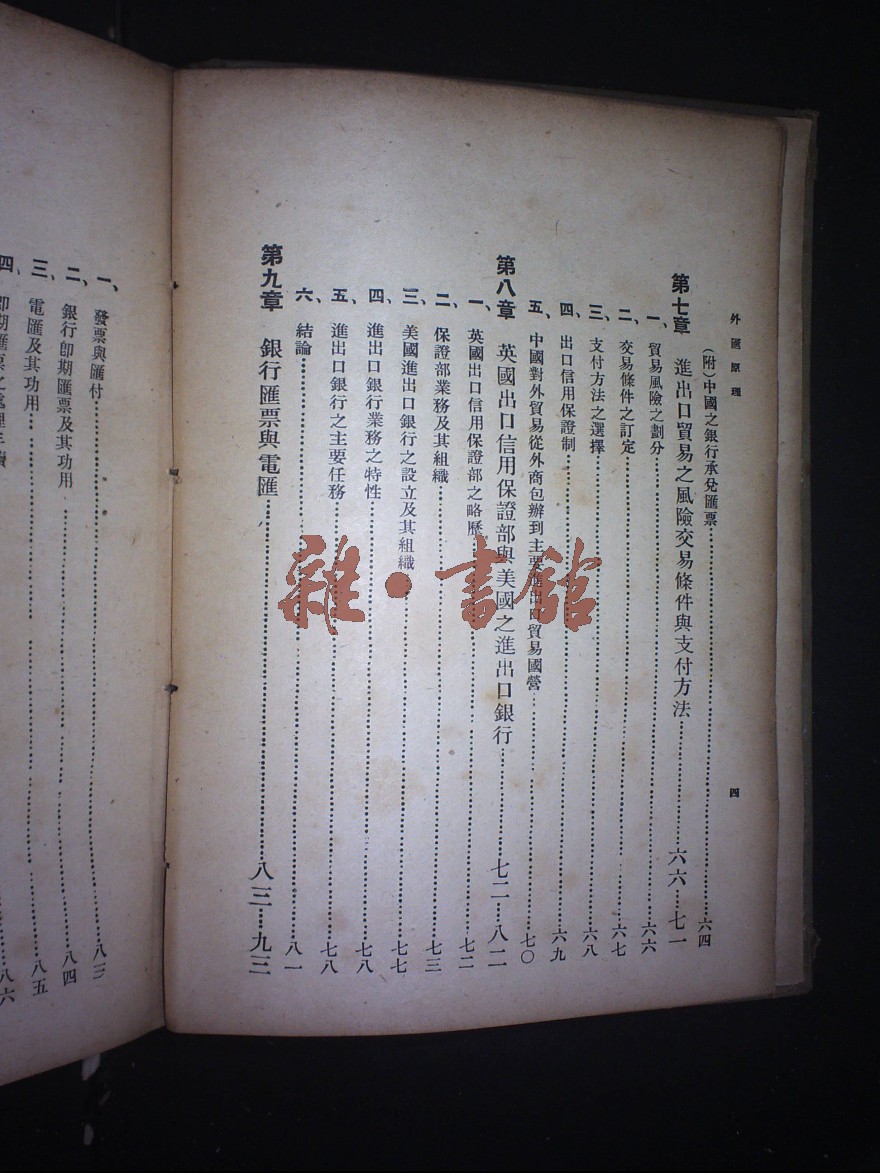 外匯原理
四
(附)中國之銀行承兌匯票……六四
第七章 進出口貿易之風險交易條件與支付方法……六六…七一
一、貿易風險之劃分……六六
二、交易條件之訂定……六七
三、支付方法之選擇……六八
四、出口信用保證制……六九
五、中國對外貿易從外商包辦到主要進出口貿易國營……七〇
第八章 英國出口信用保證部與美國之進出口銀行……七二…八二
一、英國出口信用保證部之略歷……七二
二、保證部業務及其組織……七三
三、美國進出口銀行之設立及其組織……七七
四、進出口銀行業務之特性……七八
五、進出口銀行之主要任務……七八
六、結論……八一
第九章 銀行匯票與電匯……八三…九三
一、發票與匯付……八三
二、銀行卽期匯票及其功用……八四
三、電匯及其功用……八五
四、卽期匯票之處理手續……八六
雜·書館